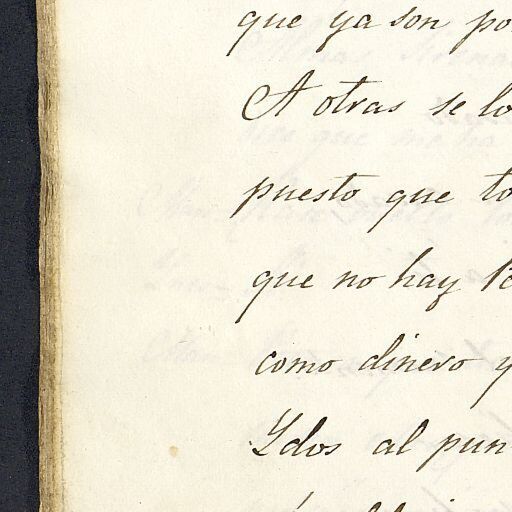 que ya son po
A otras se lo
puesto que to
que no hay
como dinero y
Ydos al pun